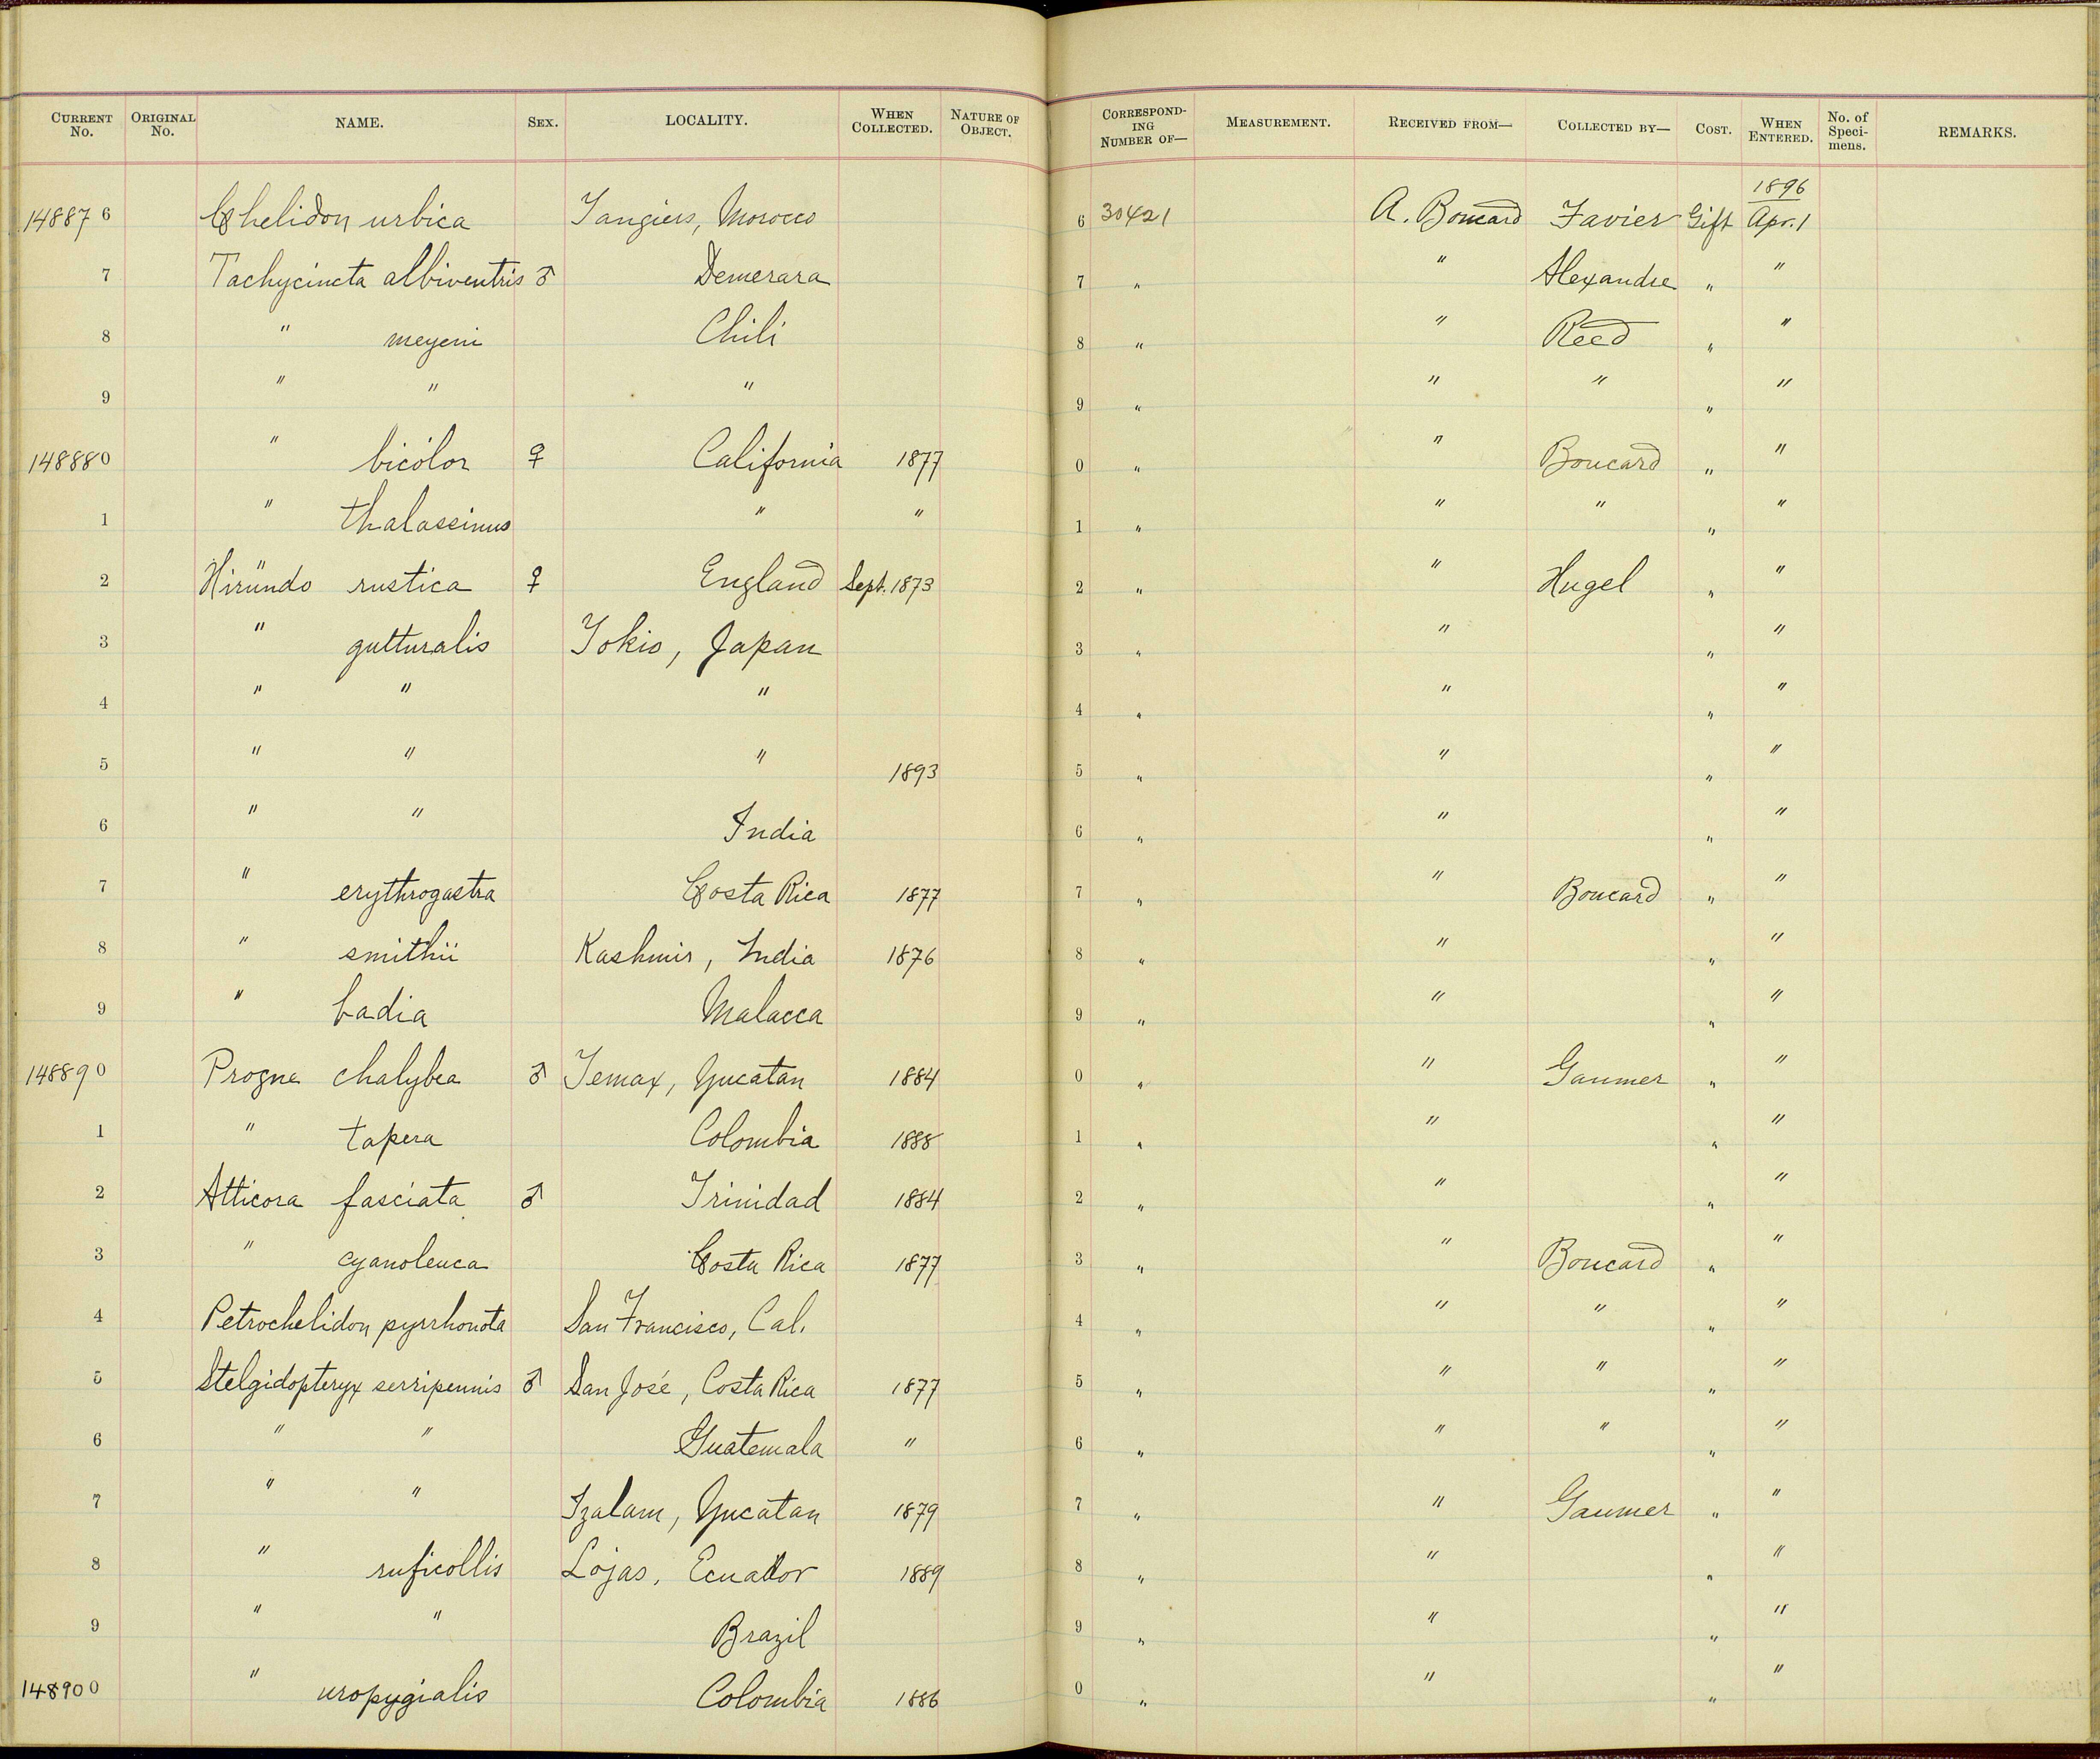 CURRENT No. ORIGINAL No. NAME. SEX. LOCALITY. WHEN COLLECTED. NATURE OF OBJECT. CORRESPONDING NUMBER OF— MEASUREMENT. RECEIVED FROM— COLLECTED BY— COST. WHEN ENTERED. No. of Specimens. REMARKS.
1896
14887 6 Chelidon urbica Tangiers, Morocco 6 30421 A. Boucard Favier Gift Apr. 1
7 Tachycincta albiventris ♂ Demerara 7 " " Alexandre " "
8 " meyeni Chili 8 " " Reed " "
9 " " " 9 " " " " "
14888 0 " bicolor ♀ California 1877 0 " " Boucard " "
1 " thalassinus " " 1 " " " " "
2 Hirundo rustica ♀ England Sept. 1873 2 " " Hugel " "
3 " gutturalis Tokio, Japan 3 " " " "
4 " " " 4 " " " "
5 " " " 1893 5 " " " "
6 " " India 6 " " " "
7 " erythrogastra Costa Rica 1877 7 " " Boucard " "
8 " smithii Kashmir, India 1876 8 " " " "
9 " badia Malacca 9 " " " "
14889 0 Progne chalybea ♂ Temax, Yucatan 1884 0 " " Gaumer " "
1 " tapera Colombia 1888 1 " " " "
2 Atticora fasciata ♂ Trinidad 1884 2 " " " "
3 " cyanoleuca Costa Rica 1877 3 " " Boucard " "
4 Petrochelidon pyrrhonota San Francisco, Cal. 4 " " " " "
5 Stelgidopteryx serripennis ♂ San José, Costa Rica 1877 5 " " " " "
6 " " Guatemala " 6 " " " " "
7 " " Izalam, Yucatan 1879 7 " " Gaumer " "
8 " ruficollis Lojas, Ecuador 1889 8 " " " "
9 " " Brazil 9 " " " "
14890 0 " uropygialis Colombia 1886 0 " " " "